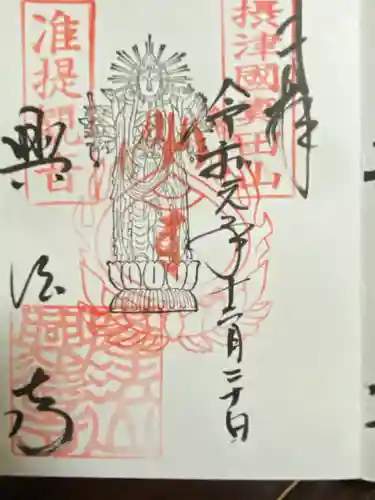 奉拝
摂津國寳田山
令和元年十二月二十日
准提観音
興法寺